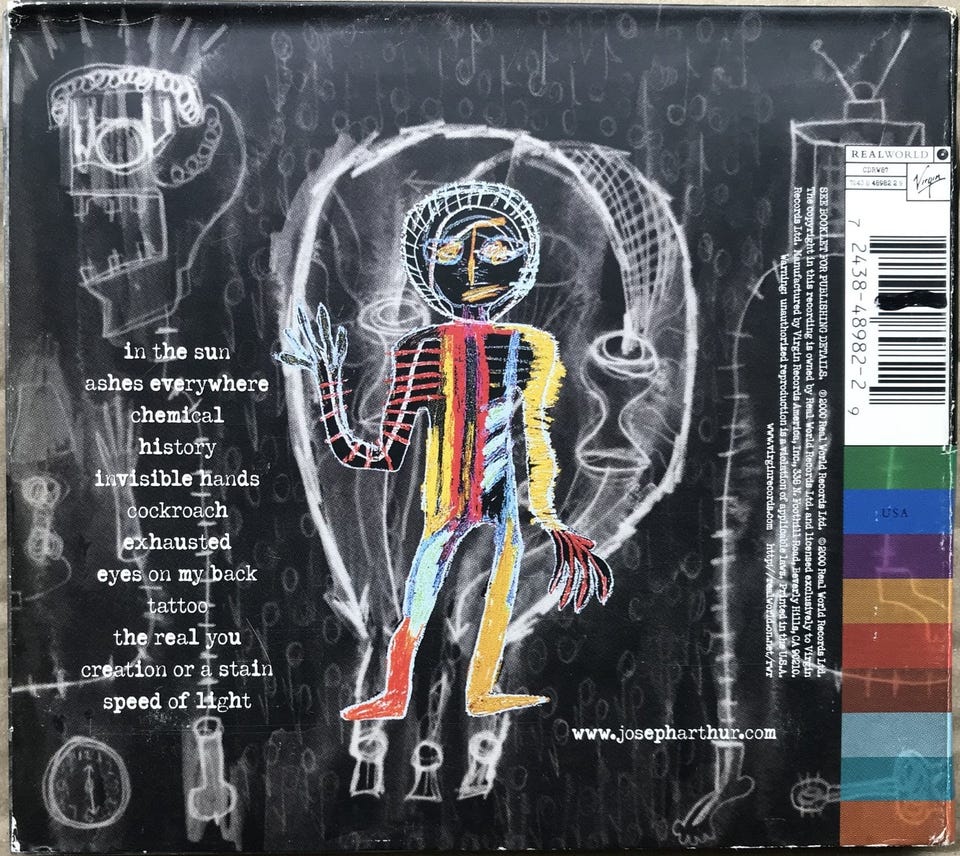 in the sun
ashes everywhere
chemical
history
invisible hands
cockroach
exhausted
eyes on my back
tattoo
the real you
creation or a stain
speed of light
www.josepharthur.com
REALWORLD
CDRW87
Virgin
7 2438-48982-2 9
USA
SEE BOOKLET FOR PUBLISHING DETAILS. ℗2000 Real World Records Ltd. ©2000 Real World Records Ltd.
The copyright in this recording is owned by Real World Records Ltd. and licensed exclusively to Virgin
Records Ltd. Manufactured by Virgin Records America, Inc., 338 N. Foothill Road, Beverly Hills, CA 90210.
Warning: unauthorized reproduction is a violation of applicable laws. Printed in the U.S.A.
www.virginrecords.com